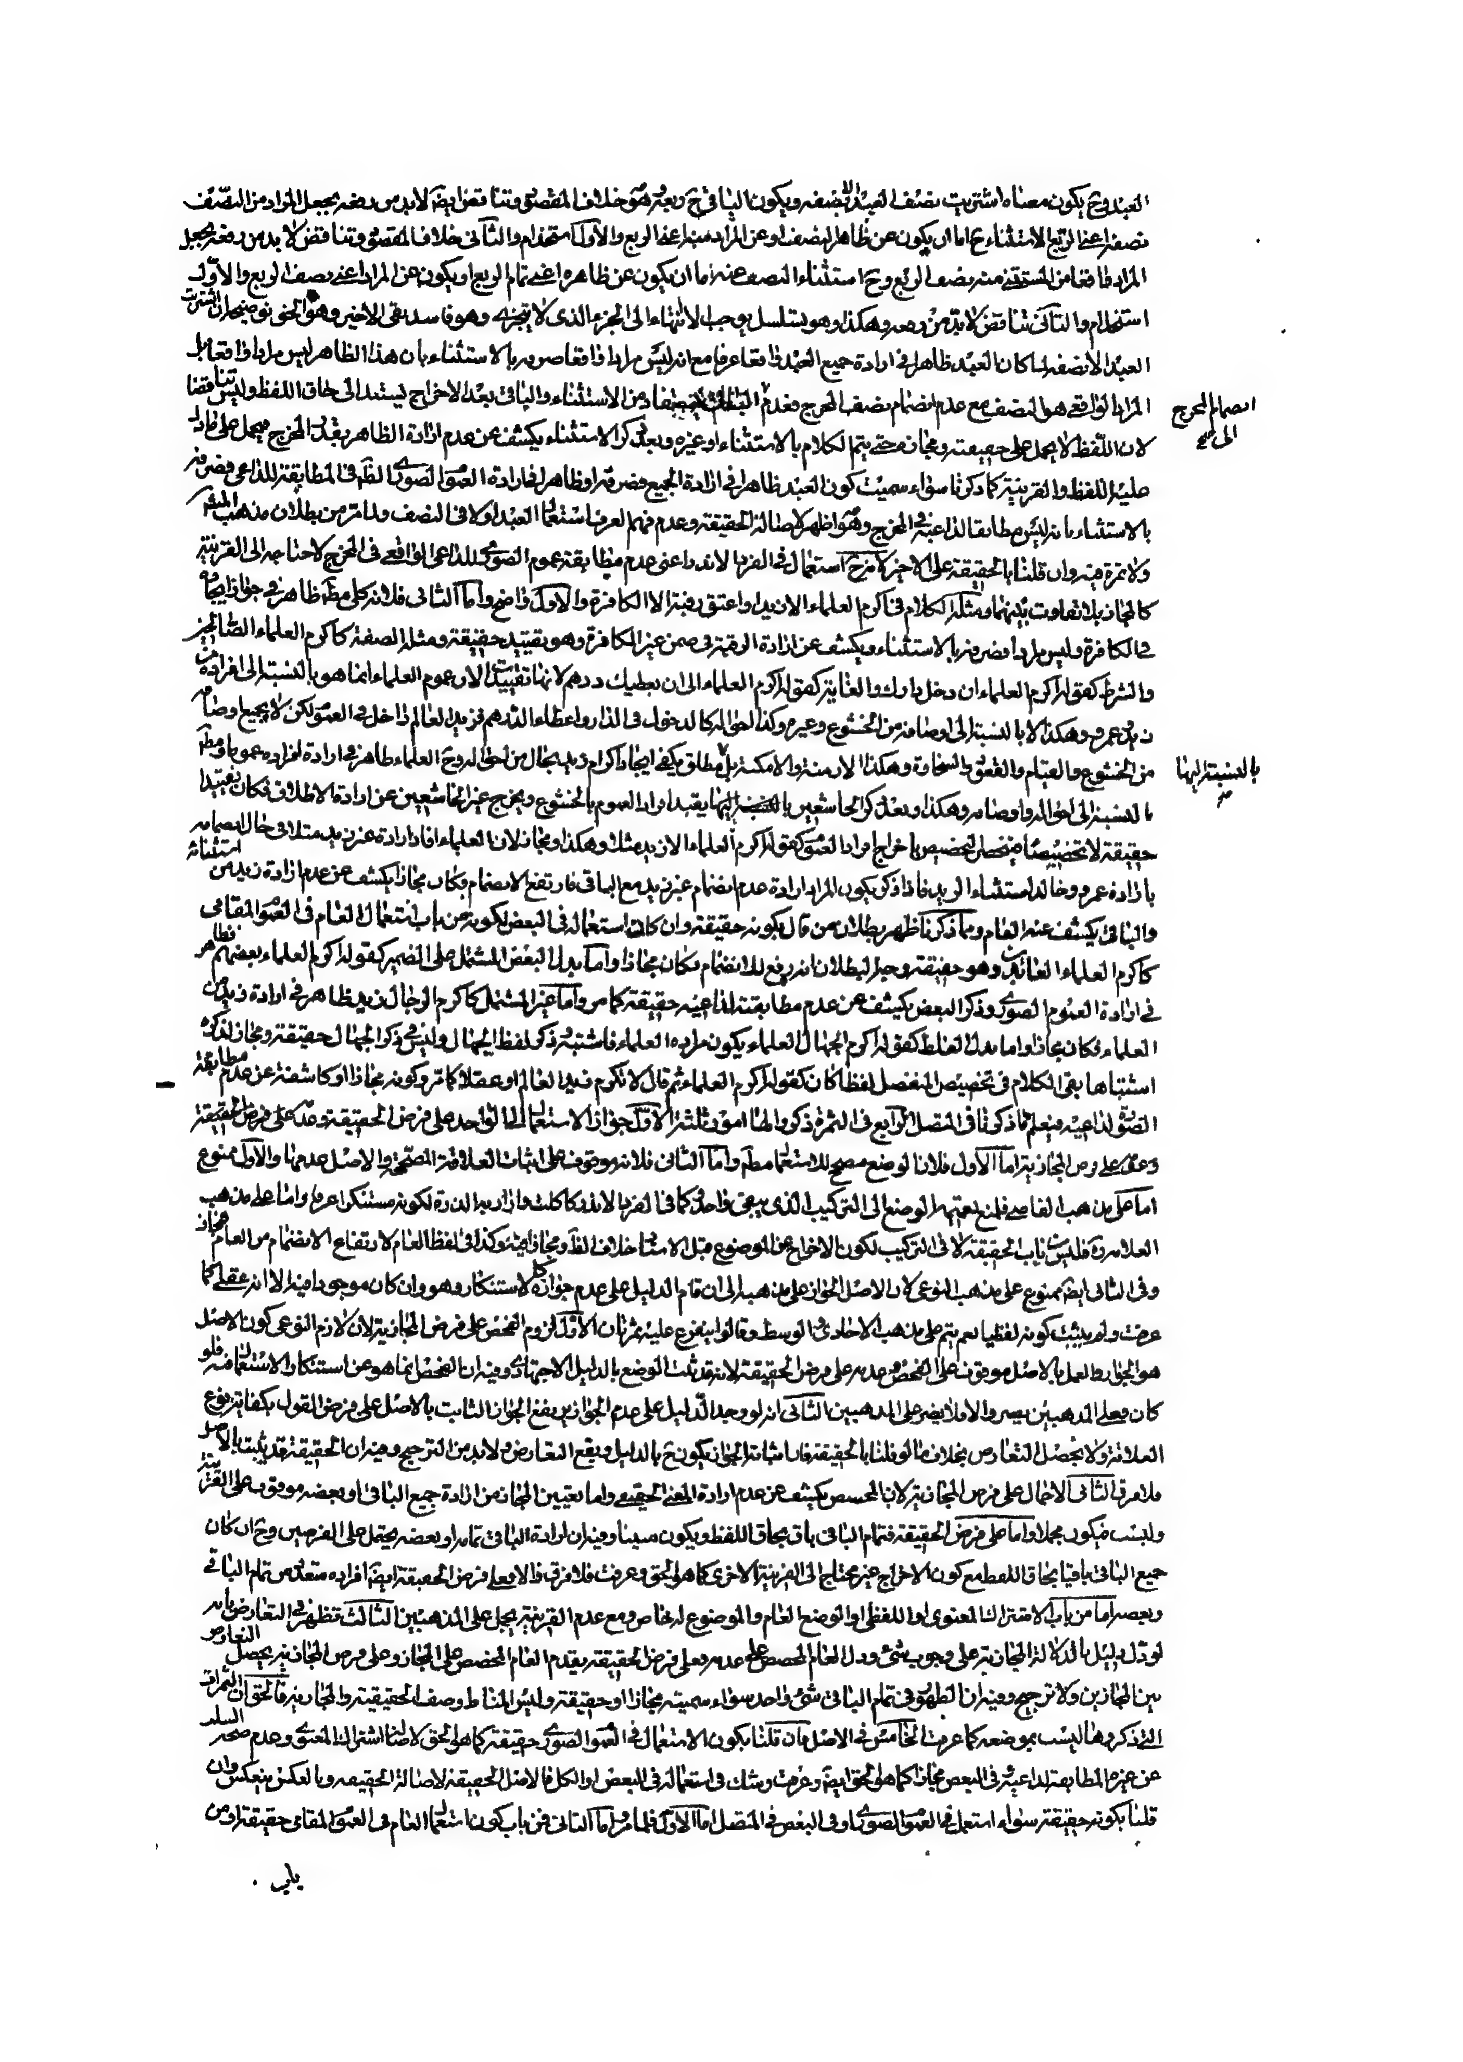 العبد وح يكون معناه اشتريت نصف العبد الا نصفه ويكون الباقى ح ربعه وهو خلاف المقصود وتناقض ايضا لابد من دفعه بجعل المراد من النصف
نصفه اعنى الربع الاستثناء ح اما ان يكون عن ظاهر النصف او عن المراد منه اعنى الربع والاول استخدام والثانى خلاف المقصود وتناقض لابد من دفعه بجعل
المراد واقعا من المستثنى منه نصف الربع وح استثناء النصف عنه اما ان يكون عن ظاهره اعنى تمام الربع او يكون عن المراد اعنى نصف الربع والاول
استخدام والثانى تناقض لابد من دفعه وهكذا وهو يتسلسل يوجب الانتهاء الى الجزء الذى لا يتجزى وهو فاسد بقى الاخير وهو الحق توضيحه ان اشتريت
العبد الا نصفه لما كان العبد ظاهرا فى ارادة جميع العبد واقعا عرفا مع انه ليس مرادا واقعا صرفه بالاستثناء بان هذا الظاهر ليس مرادا واقعا بل
المراد الواقعى هو النصف مع عدم انضمام نصف المخرج فعدم مستفاد من الاستثناء والباقى بعد الاخراج يستند الى حاق اللفظ وليس تناقضا
انضمام المخرج
الى
لان اللفظ لا يحمل على حقيقته ومجازه حتى يتم الكلام بالاستثناء او غيره وبعد ذكر الاستثناء يكشف عن عدم ارادة الظاهر بقدر المخرج فيحمل على ما دل
عليه اللفظ والقرينة كما ذكرنا سواء سميت كون العبد ظاهرا فى ارادة الجميع فصرفه او ظاهرا فى ارادة العموم الصورى الظاهر فى المطابقة للداعى فصرفه
بالاستثناء بانه ليس مطابقا لداعيه فى المخرج وهو اظهر لاصالة الحقيقة وعدم فهم العرف استعمال العبد اولا فى النصف ولما مر من بطلان مذهب المشهور
ولا ثمرة فيه وان قلنا بالحقيقة على الاخير لا مزح استعمال فى الفر بالابد اعنى عدم مطابقة عموم الصورى للداعى الواقعى فى المخرج لاحتياجه الى القرينة
كالمجاز بلا تفاوت بينهما ومثله الكلام فى اكرم العلماء الا زيدا واعتق رقبة الا الكافرة والاول واضح واما الثانى فلانه كلى مط ظاهر فى جواز ايجاده
فى الكافرة وليس مرادا فصرفه بالاستثناء ويكشف عن ارادة الرقبة فى ضمن غير الكافرة وهو تقييد حقيقة ومثله الصفة كاكرم العلماء الصالحين
والشرط كقوله اكرم العلماء ان دخل دارك والغاية كقوله اكرم العلماء الى ان يعطيك درهم لانها تقييدات لان عموم العلماء انما هو بالنسبة الى افراده من
زيد وعمرو وهكذا لا بالنسبة الى اوصافه من الخشوع وغيره وكذا احواله كالدخول فى الدار واعطاء الدرهم فزيد العالم داخل فى العموم لكن لا بجميع اوصافه
من الخشوع والقيام والقعود والسخاوة وهكذا الازمنة والامكنة بل مطلق يكفى ايجاد اكرام زيد بحال من احواله وح العلماء ظاهر فى ارادة افراده عموما ومط
بالنسبة اليها
بالنسبة الى احواله واوصافه وهكذا وبعد ذكر الخاشعين يقيد افراد العموم بالخشوع ويخرج غير الخاشعين عن ارادة الاطلاق فكان تقييدا
حقيقة لا تخصيصا فينحصر التخصيص باخراج افراد العموم كقوله اكرم العلماء الا زيدا مثلا وهكذا ومجاز لان العلماء افاد ارادة عن زيد مثلا فى حال انضمامه
بارادة عمرو وخالد استثناء الزيد فاذا ذكر يكون المراد ارادة عدم انضمام غير زيد مع الباقى فارتفع الانضمام فكان مجازا يكشف عن عدم ارادة زيد من استثنائه
والباقى يكشف عنه العام ومما ذكرنا ظهر بطلان من قال بكونه حقيقة وان كانت استعماله فى البعض لكونه من باب استعمال العام فى العموم المقامى
كاكرم العلماء الغائبين وهو حقيقة وجه البطلان انه رفع للانضمام فكان مجازا واما بدل البعض المشتمل على الضمير كقوله اكرم العلماء بعضهم فظاهر
فى ارادة العموم الصورى وذكر البعض يكشف عن عدم مطابقته لداعيه حقيقة كما مر واما غير المشتمل كاكرم الرجال زيد ظاهر فى ارادة زيد من
العلماء فكان مجازا واما بدل الغلط كقوله اكرم الجهال العلماء يكون مراده العلماء فاشتبه وذكر لفظ الجهال وليس فى ذكر الجهال حقيقة ومجاز لذكره
اشتباها بقى الكلام فى تخصيص المنفصل لفظا كان كقوله اكرم العلماء ثم قال لا تكرم زيد العالم او عقلا كما مر وكونه مجازا او كاشفة عن عدم مطابقة
الصورى لداعيه فيعلم مما ذكرنا فى المتصل الرابع فى الثمرة ذكروا لها امور ثلثة الاول جواز الاستعمال الى الواحد على فرض الحقيقة وعدمه على فرض الحقيقة
وعدمه على فرض المجازية اما الاول فلان الوضع مصحح للاستعمال مط واما الثانى فلانه موقوف على اثبات العلاقة المصححة والاصل عدمها والاول ممنوع
اما على مذهب القاضى فلمنع تعميم الوضع الى التركيب الذى يبقى واحد كما فى الفر بالابد كاكلت وازاربه الذرة لكونه مستنكرا عرفا واما على مذهب
العلامة فليس باب الحقيقة لا فى التركيب لكون الاخراج عن الموضوع قبل الاسناد خلاف الظ ومجازا فيه وكذا فى لفظ العام لارتفاع الانضمام من العام مجاز
وفى الثانى ايض ممنوع على مذهب النوعى لان الاصل الجواز على مذهبه الى ان قام الدليل على عدم جوازه كالاستنكار وهو وان كان موجودا فيه الا انه عقلى كما
عرفت ولم يثبت كونه لفظيا نعم يتم على مذهب الاحادى والوسط وقالوا يتفرع عليه ثمرتان الاول لزوم الفحص على فرض المجازية لان لازم النوعى كون الاصل
هو الجواز والعمل بالاصل موقوف على الفحص وعدمه على فرض الحقيقة لانه قد ثبت الوضع بالدليل الاجتهادى وفيه ان الفحص انما هو عن استنكار الاستعمال فلو
كان فعلى المذهبين يضر والا فلا يضر على المذهبين الثانى انه لو وجد الدليل على عدم الجواز يرفع الجواز الثابت بالاصل على فرض القول بكفاية نوع
العلاقة ولا يحصل التعارض بخلاف ما لو قلنا بالحقيقة فان اثبات الجواز يكون ح بالدليل ويقع التعارض ولابد من الترجيح وفيه ان الحقيقة قد يثبت بالاصل
فلا فرق الثانى الاجمال على فرض المجازية لان المخصص يكشف عن عدم ارادة المعنى الحقيقى واما تعيين المجاز من ارادة جميع الباقى او بعضه موقوف على القرينة
وليست فيكون مجملا واما على فرض الحقيقة فتمام الباقى باق بحاق اللفظ ويكون مبينا وفيه ان ارادة الباقى تمامه او بعضه يحتمل على الفرضين وح ان كان
جميع الباقى باقيا بحاق اللفظ مع كون الاخراج غير محتاج الى القرينة الاخرى كما هو الحق وعرفت فلا فرق والا فعلى فرض الحقيقة ايض افراده متعدد من تمام الباقى
وبعضه اما من باب الاشتراك المعنوى او اللفظى او الوضع العام والموضوع له خاص ومع عدم القرينة يجمل على المذهبين الثالث تظهر فى التعارض بانه
لو دل دليل بالدلالة المجازية على وجوب شئ ودل العام المخصص على عدمه فعلى فرض الحقيقة يقدم العام المخصص على المجاز وعلى فرض المجازية يحصل التعارض
بين المجازين ولا ترجيح وفيه ان الظهور فى تمام الباقى شئ واحد سواء سميته مجازا او حقيقة وليس المناط وصف الحقيقة والمجازية فالحق ان الثمرات
التى ذكروها ليست بموضعه كما عرفت الخامس فى الاصل فان قلنا بكون الاستعمال فى العموم الصورى حقيقة كما هو الحق لاصالة اشتراك المعنوى وعدم صحة السلب
عن غير المطابقة لداعيه وفى البعض مجازا كما هو الحق ايضا وعرفت وشك فى استعماله فى البعض او الكل فالاصل الحقيقة لاصالة الحقيقة وبالعكس ينعكس وان
قلنا بكونه حقيقة سواء استعمل فى العموم الصورى او فى البعض فى المتصل اما الاول فلما مر واما الثانى فمن باب كون استعمال العام فى العموم المقامى حقيقة او من